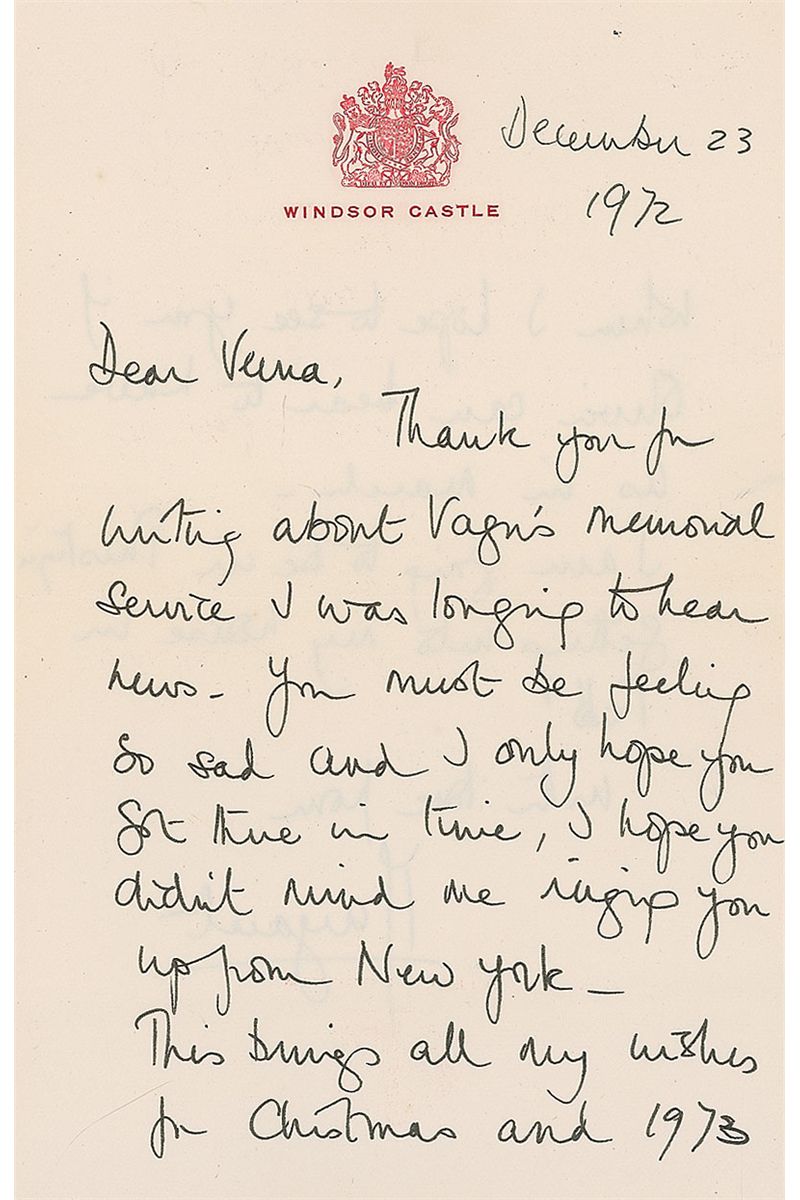 December 23
1972
WINDSOR CASTLE
Dear Verna,
Thank you for
writing about Vagn's memorial
service I was longing to hear
news - You must be feeling
so sad and I only hope you
got there in time, I hope you
didn't mind me ringing you
up from New York -
This brings all my wishes
for Christmas and 1973